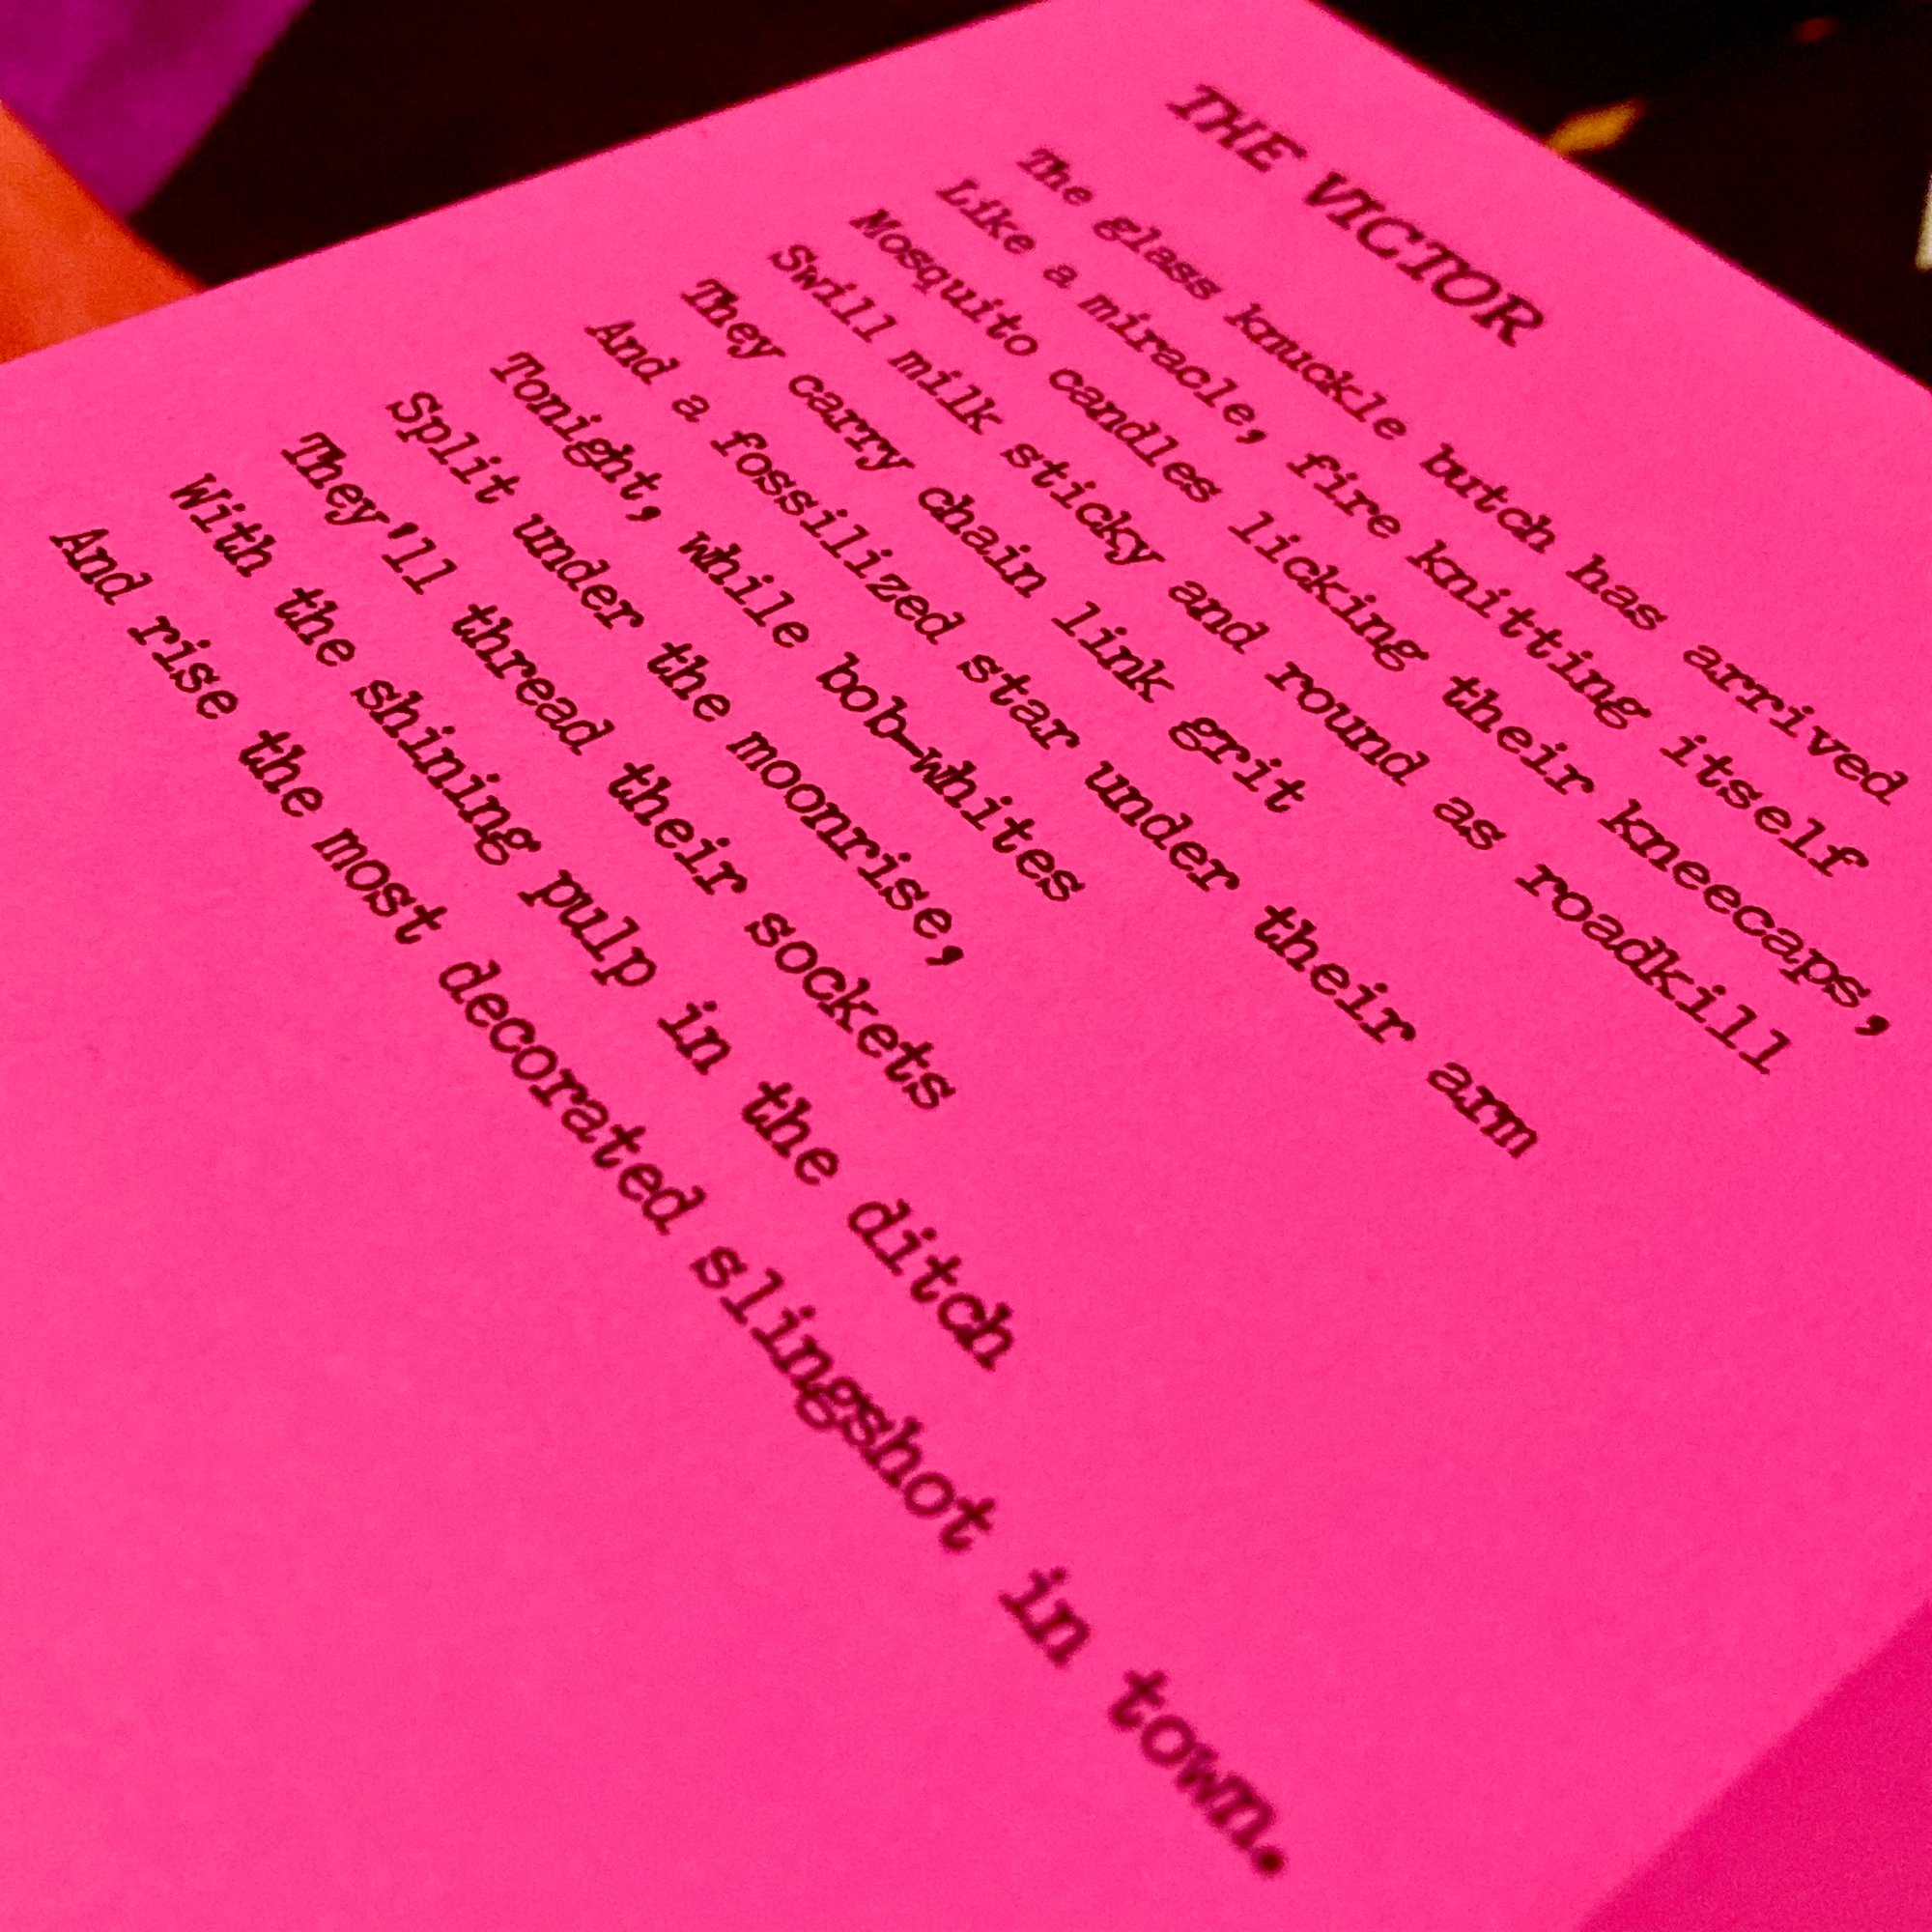 THE VICTOR
The glass knuckle butch has arrived
Like a miracle, fire knitting itself
Mosquito candles licking their kneecaps,
Swill milk sticky and round as roadkill
They carry chain link grit
And a fossilized star under their arm
Tonight, while bob-whites
Split under the moonrise,
They'll thread their sockets
With the shining pulp in the ditch
And rise the most decorated slingshot in town.